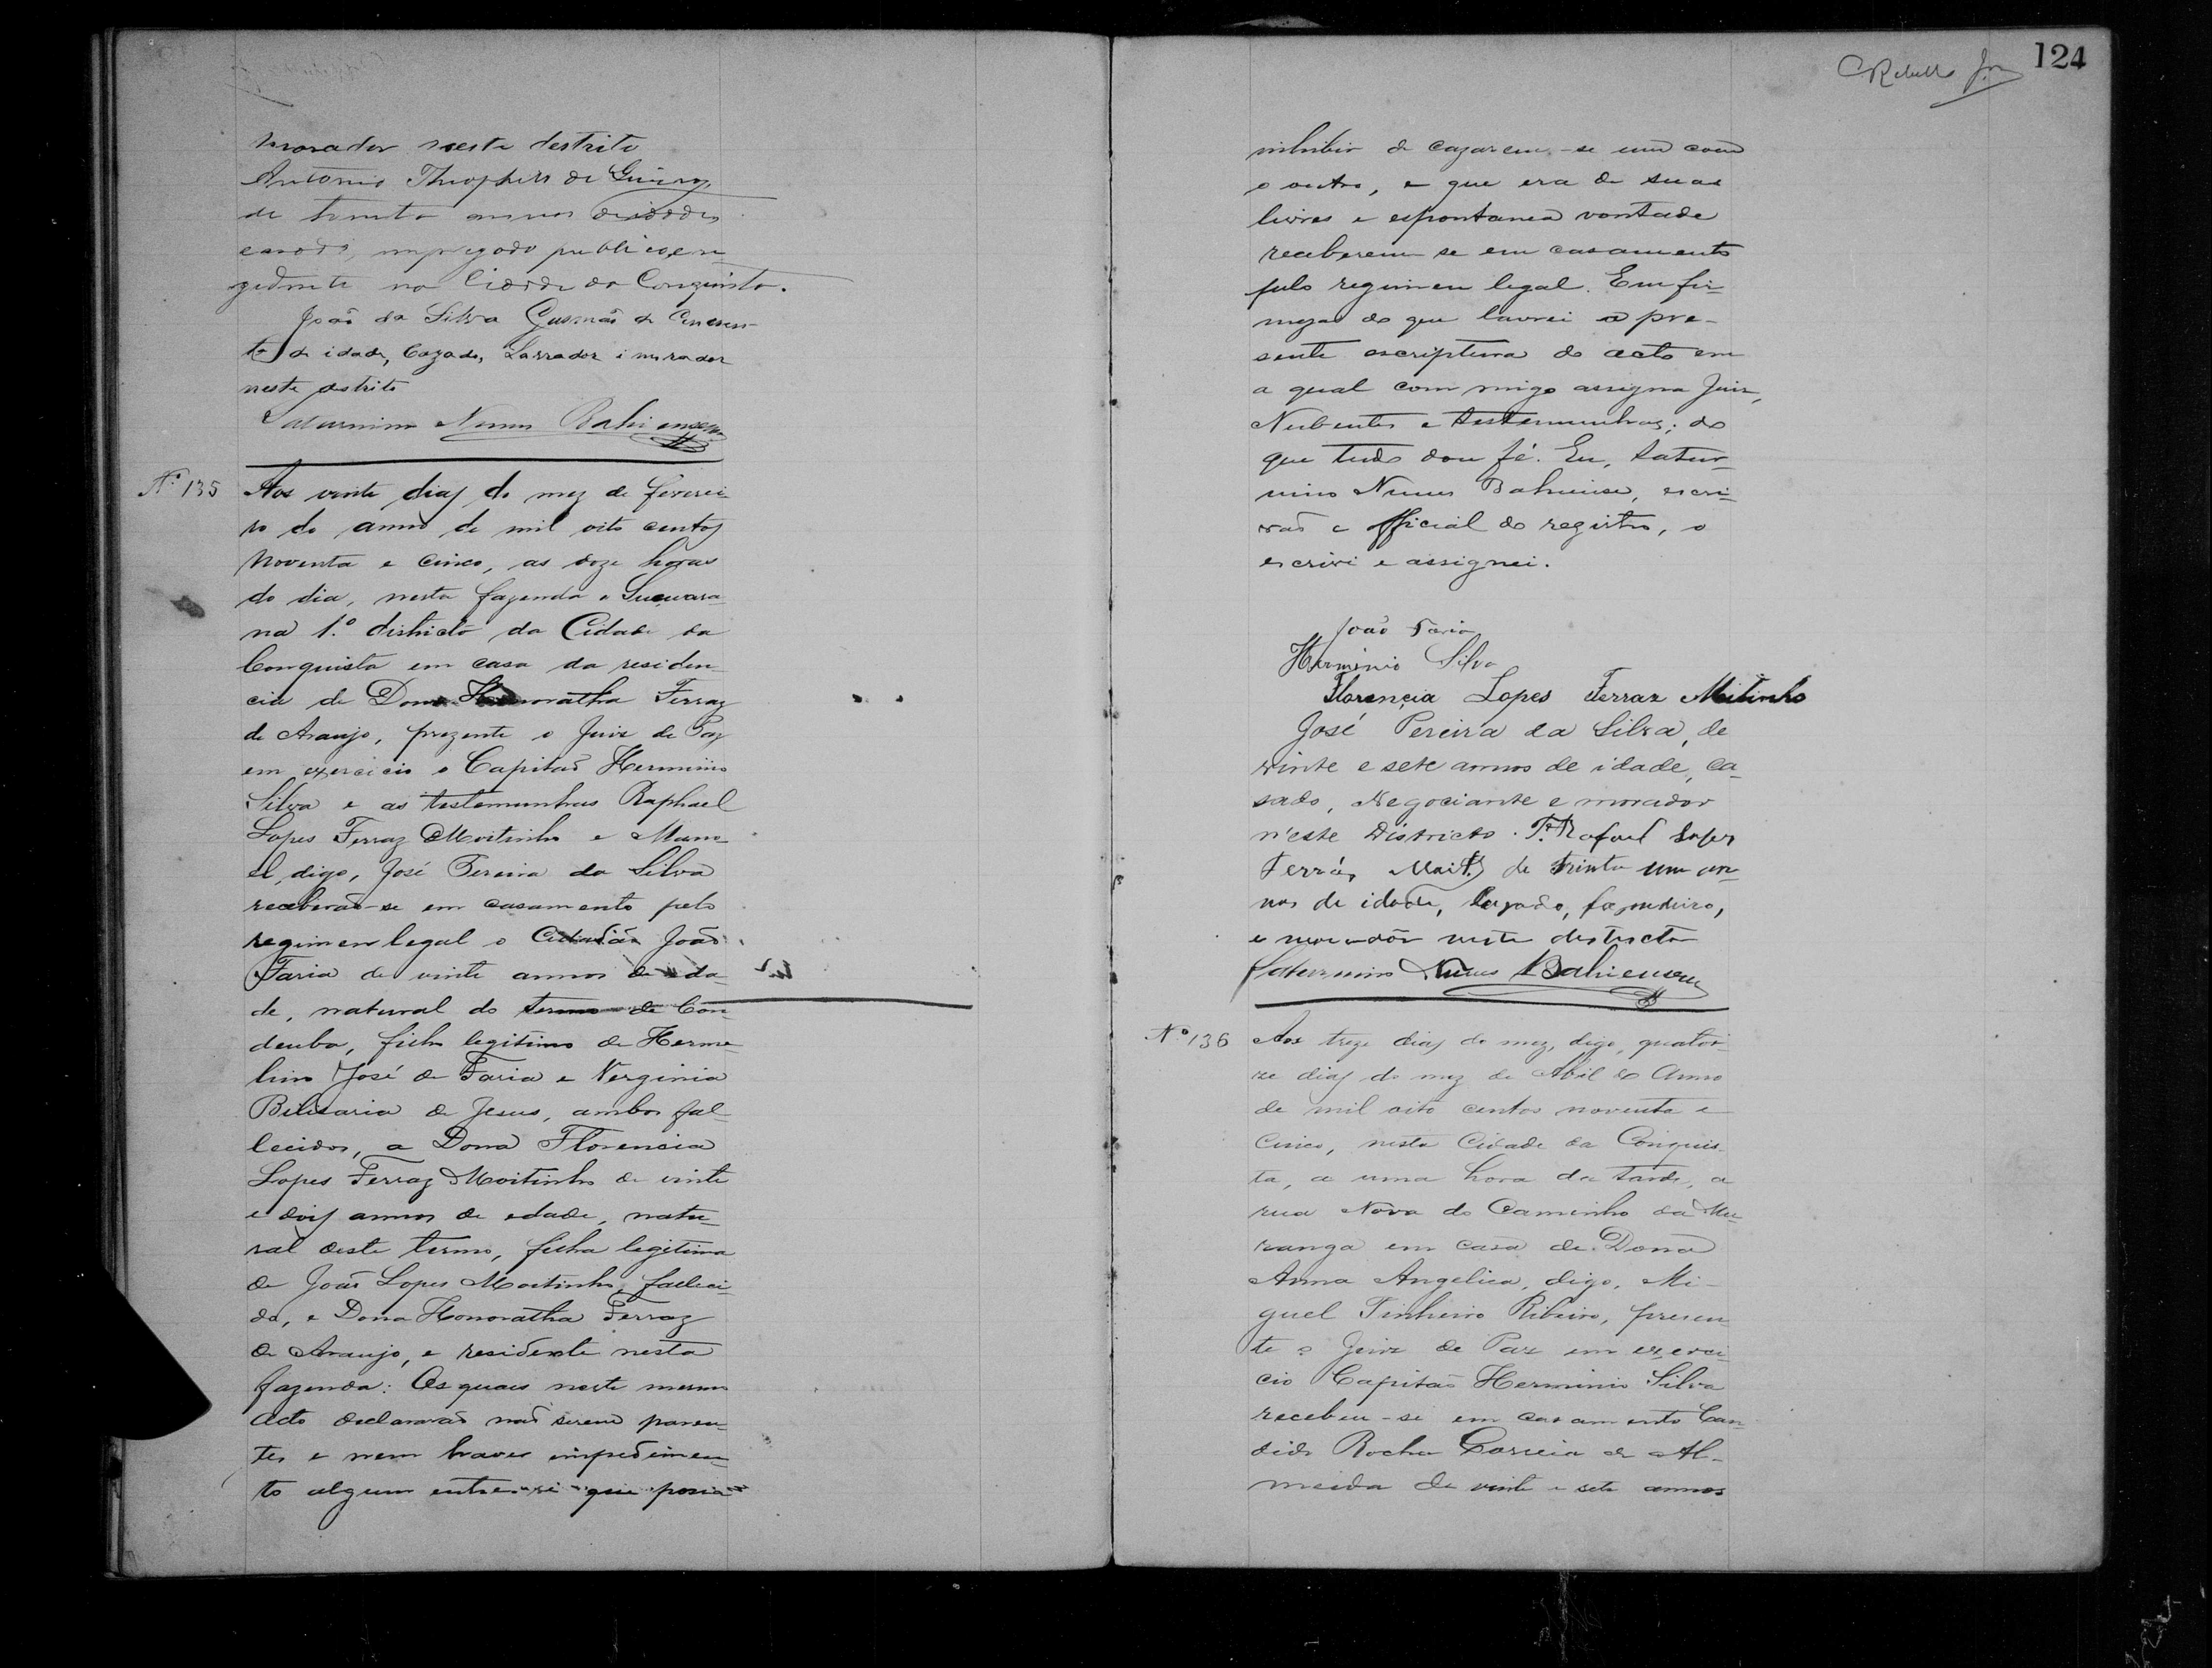 morador neste destrito
Antonio Theophilo de
de trinta annos de idade,
casado, empregado publico, re
zidente na Cidade da Conquista.
João da Silva Gusmão de Cincoen-
ta de idade, Cazado, Lavrador i morador
neste destrito
Saturnino Nunes Bahiensen
Nº 135 Aos vinte dias do mez de feverei-
ro do anno de mil oito centos
noventa e cinco, as doze horas
do dia, nesta fazenda a Suçuara-
na 1º districto da Cidade da
Conquista em casa da residen-
cia de Dona Honoratha Ferraz
de Araujo, prezente o Juiz de Paz
em exercicio o Capitaõ Herminio
Silva e as testemunhas Raphael
Lopes Ferraz Moitinho e Mano-
el, digo, José Pereira da Silva
receberaõ-se em casamento pelo
regimen legal o Cidadão João
Faria de vinte annos de ida-
de, natural do termo de Con-
deuba, filho legitimo de Herme-
lino José de Faria e Verginia
Belisaria de Jesus, ambos fal-
lecidos, a Dona Florencia
Lopes Ferraz Moitinho de vinte
e dois annos de edade, natu-
ral deste termo, filha legitima
de João Lopes Moitinho, falleci-
do, e Dona Honoratha Ferraz
de Araujo, e residente nesta
fazenda: Os quaes neste mesmo
acto declararaõ naõ serem paren-
tes e nem haver impedimen-
to algum entre si que possa
124
inhibir de cazarem-se um com
o outro, e que era de suas
livres e espontanea vontade
receberem se em casamento
pelo regimen legal. Em fir-
meza do que lavrei a pre-
sente escriptura do acto em
a qual com migo assigna Juiz,
Nubentes e testemunhas; do
que tudo dou fé. Eu, Satur-
nino Nunes Bahiense, escri-
vaõ e official do registro, o
escrivi e assignei.
João Faria
Herminio Silva
Florencia Lopes Ferraz Mitinho
José Pereira da Silva, de
vinte e sete annos de idade, ca-
sado, Negociante e morador
n'este Districto. Tª Rafael Lopes
Ferrás de trinta um an-
nos de idade, Cazado, fazendeiro,
e morador neste destricto
Saturnino Nunes Bahiensen
Nº 136 Aos treze dias do mez, digo, quator-
ze dias do mez de Abil do Anno
de mil oito centos noventa e
Cinco, nesta Cidade da Conquis-
ta, a uma hora da tarde, a
rua Nova do Caminho da Mu-
ranga em casa de Dona
Anna Angelica, digo, Mi-
guel Pinheiro Ribeiro, presen-
te o Juiz de Paz em exerci-
cio Capitaõ Herminio Silva
recebeu-se em casamento Can-
dido Rocha Correia de Al-
meida de vinte e sete annos